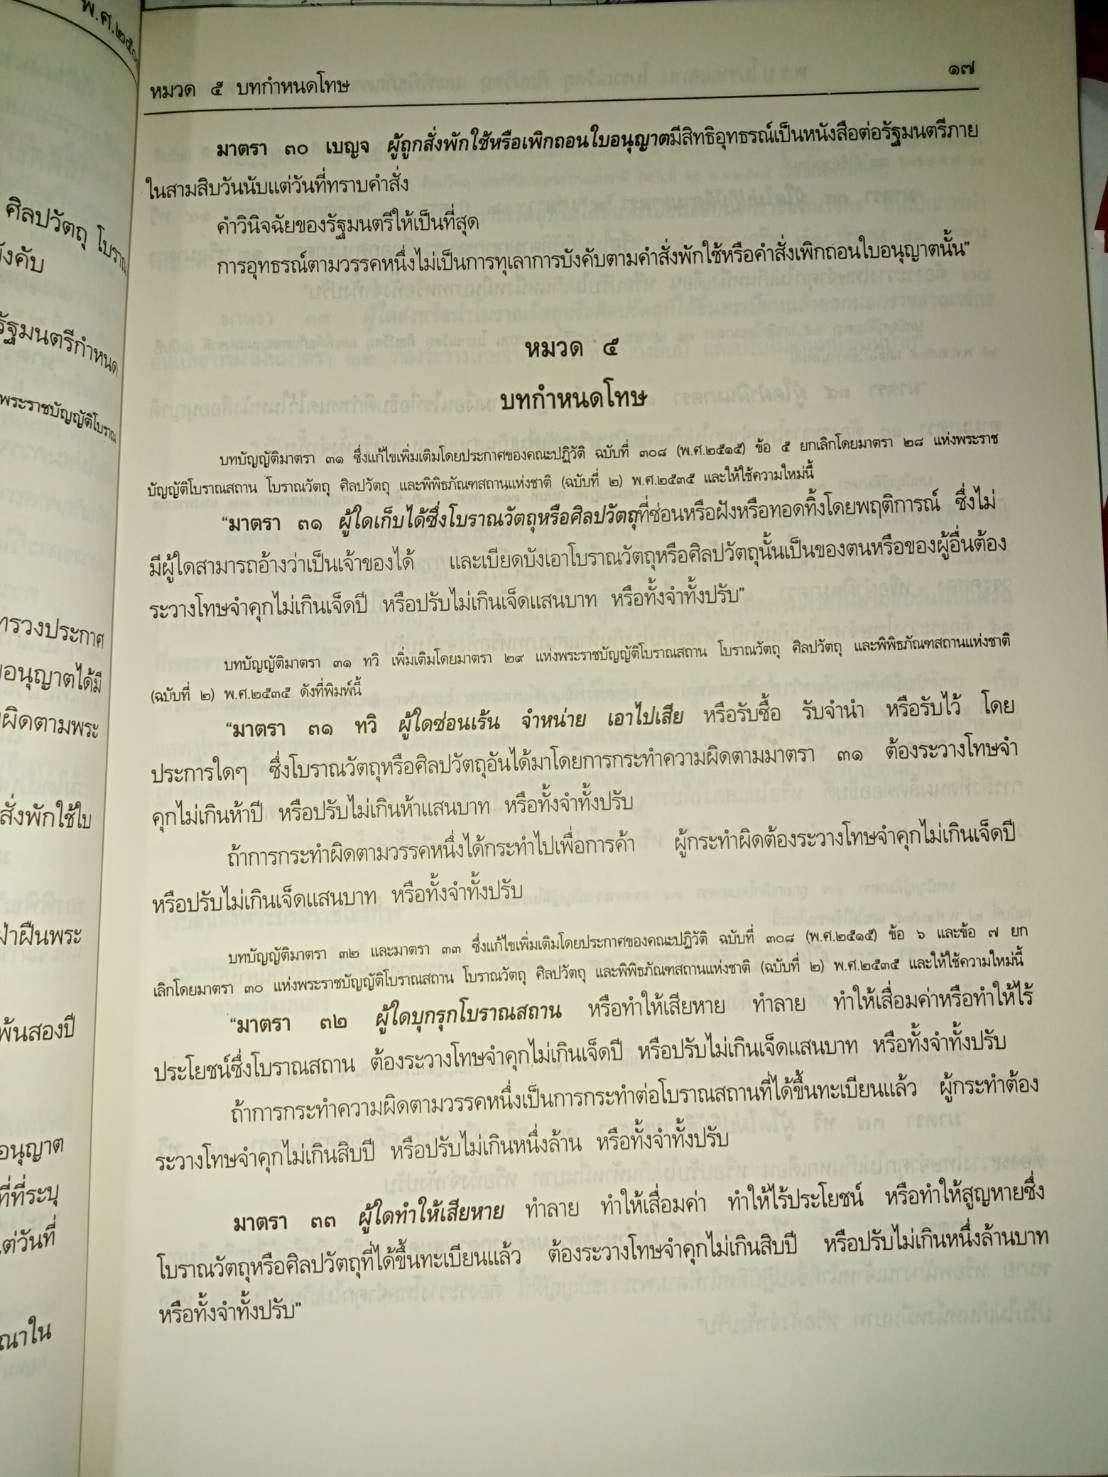 พ.ศ.๒๕
ศิลปวัตถุ โบราณ
ังคับ
รัฐมนตรีกำหนด
พระราชบัญญัติโบราณ
ทรวงประกาศ
อนุญาตได้มี
ผิดตามพระ
สั่งพักใช้ใบ
ฝ่าฝืนพระ
พ้นสองปี
อนุญาต
ที่ที่ระบุ
แต่วันที่
ณาใน
หมวด ๕ บทกำหนดโทษ ๑๗
มาตรา ๓๐ เบญจ ผู้ถูกสั่งพักใช้หรือเพิกถอนใบอนุญาตมีสิทธิอุทธรณ์เป็นหนังสือต่อรัฐมนตรีภาย
ในสามสิบวันนับแต่วันที่ทราบคำสั่ง
คำวินิจฉัยของรัฐมนตรีให้เป็นที่สุด
การอุทธรณ์ตามวรรคหนึ่งไม่เป็นการทุเลาการบังคับตามคำสั่งพักใช้หรือคำสั่งเพิกถอนใบอนุญาตนั้น"
หมวด ๕
บทกำหนดโทษ
บทบัญญัติมาตรา ๓๑ ซึ่งแก้ไขเพิ่มเติมโดยประกาศของคณะปฏิวัติ ฉบับที่ ๓๐๘ (พ.ศ.๒๕๑๕) ข้อ ๕ ยกเลิกโดยมาตรา ๒๘ แห่งพระราช
บัญญัติโบราณสถาน โบราณวัตถุ ศิลปวัตถุ และพิพิธภัณฑสถานแห่งชาติ (ฉบับที่ ๒) พ.ศ.๒๕๓๕ และให้ใช้ความใหม่นี้
"มาตรา ๓๑ ผู้ใดเก็บได้ซึ่งโบราณวัตถุหรือศิลปวัตถุที่ซ่อนหรือฝังหรือทอดทิ้งโดยพฤติการณ์ ซึ่งไม่
มีผู้ใดสามารถอ้างว่าเป็นเจ้าของได้ และเบียดบังเอาโบราณวัตถุหรือศิลปวัตถุนั้นเป็นของตนหรือของผู้อื่นต้อง
ระวางโทษจำคุกไม่เกินเจ็ดปี หรือปรับไม่เกินเจ็ดแสนบาท หรือทั้งจำทั้งปรับ"
บทบัญญัติมาตรา ๓๑ ทวิ เพิ่มเติมโดยมาตรา ๒๙ แห่งพระราชบัญญัติโบราณสถาน โบราณวัตถุ ศิลปวัตถุ และพิพิธภัณฑสถานแห่งชาติ
(ฉบับที่ ๒) พ.ศ.๒๕๓๕ ดังที่พิมพ์นี้
"มาตรา ๓๑ ทวิ ผู้ใดซ่อนเร้น จำหน่าย เอาไปเสีย หรือรับซื้อ รับจำนำ หรือรับไว้ โดย
ประการใดๆ ซึ่งโบราณวัตถุหรือศิลปวัตถุอันได้มาโดยการกระทำความผิดตามมาตรา ๓๑ ต้องระวางโทษจำ
คุกไม่เกินห้าปี หรือปรับไม่เกินห้าแสนบาท หรือทั้งจำทั้งปรับ
ถ้าการกระทำผิดตามวรรคหนึ่งได้กระทำไปเพื่อการค้า ผู้กระทำผิดต้องระวางโทษจำคุกไม่เกินเจ็ดปี
หรือปรับไม่เกินเจ็ดแสนบาท หรือทั้งจำทั้งปรับ
บทบัญญัติมาตรา ๓๒ และมาตรา ๓๓ ซึ่งแก้ไขเพิ่มเติมโดยประกาศของคณะปฏิวัติ ฉบับที่ ๓๐๘ (พ.ศ.๒๕๑๕) ข้อ ๖ และข้อ ๗ ยก
เลิกโดยมาตรา ๓๐ แห่งพระราชบัญญัติโบราณสถาน โบราณวัตถุ ศิลปวัตถุ และพิพิธภัณฑสถานแห่งชาติ (ฉบับที่ ๒) พ.ศ.๒๕๓๕ และให้ใช้ความใหม่นี้
"มาตรา ๓๒ ผู้ใดบุกรุกโบราณสถาน หรือทำให้เสียหาย ทำลาย ทำให้เสื่อมค่าหรือทำให้ไร้
ประโยชน์ซึ่งโบราณสถาน ต้องระวางโทษจำคุกไม่เกินเจ็ดปี หรือปรับไม่เกินเจ็ดแสนบาท หรือทั้งจำทั้งปรับ
ถ้าการกระทำความผิดตามวรรคหนึ่งเป็นการกระทำต่อโบราณสถานที่ได้ขึ้นทะเบียนแล้ว ผู้กระทำต้อง
ระวางโทษจำคุกไม่เกินสิบปี หรือปรับไม่เกินหนึ่งล้าน หรือทั้งจำทั้งปรับ
มาตรา ๓๓ ผู้ใดทำให้เสียหาย ทำลาย ทำให้เสื่อมค่า ทำให้ไร้ประโยชน์ หรือทำให้สูญหายซึ่ง
โบราณวัตถุหรือศิลปวัตถุที่ได้ขึ้นทะเบียนแล้ว ต้องระวางโทษจำคุกไม่เกินสิบปี หรือปรับไม่เกินหนึ่งล้านบาท
หรือทั้งจำทั้งปรับ"